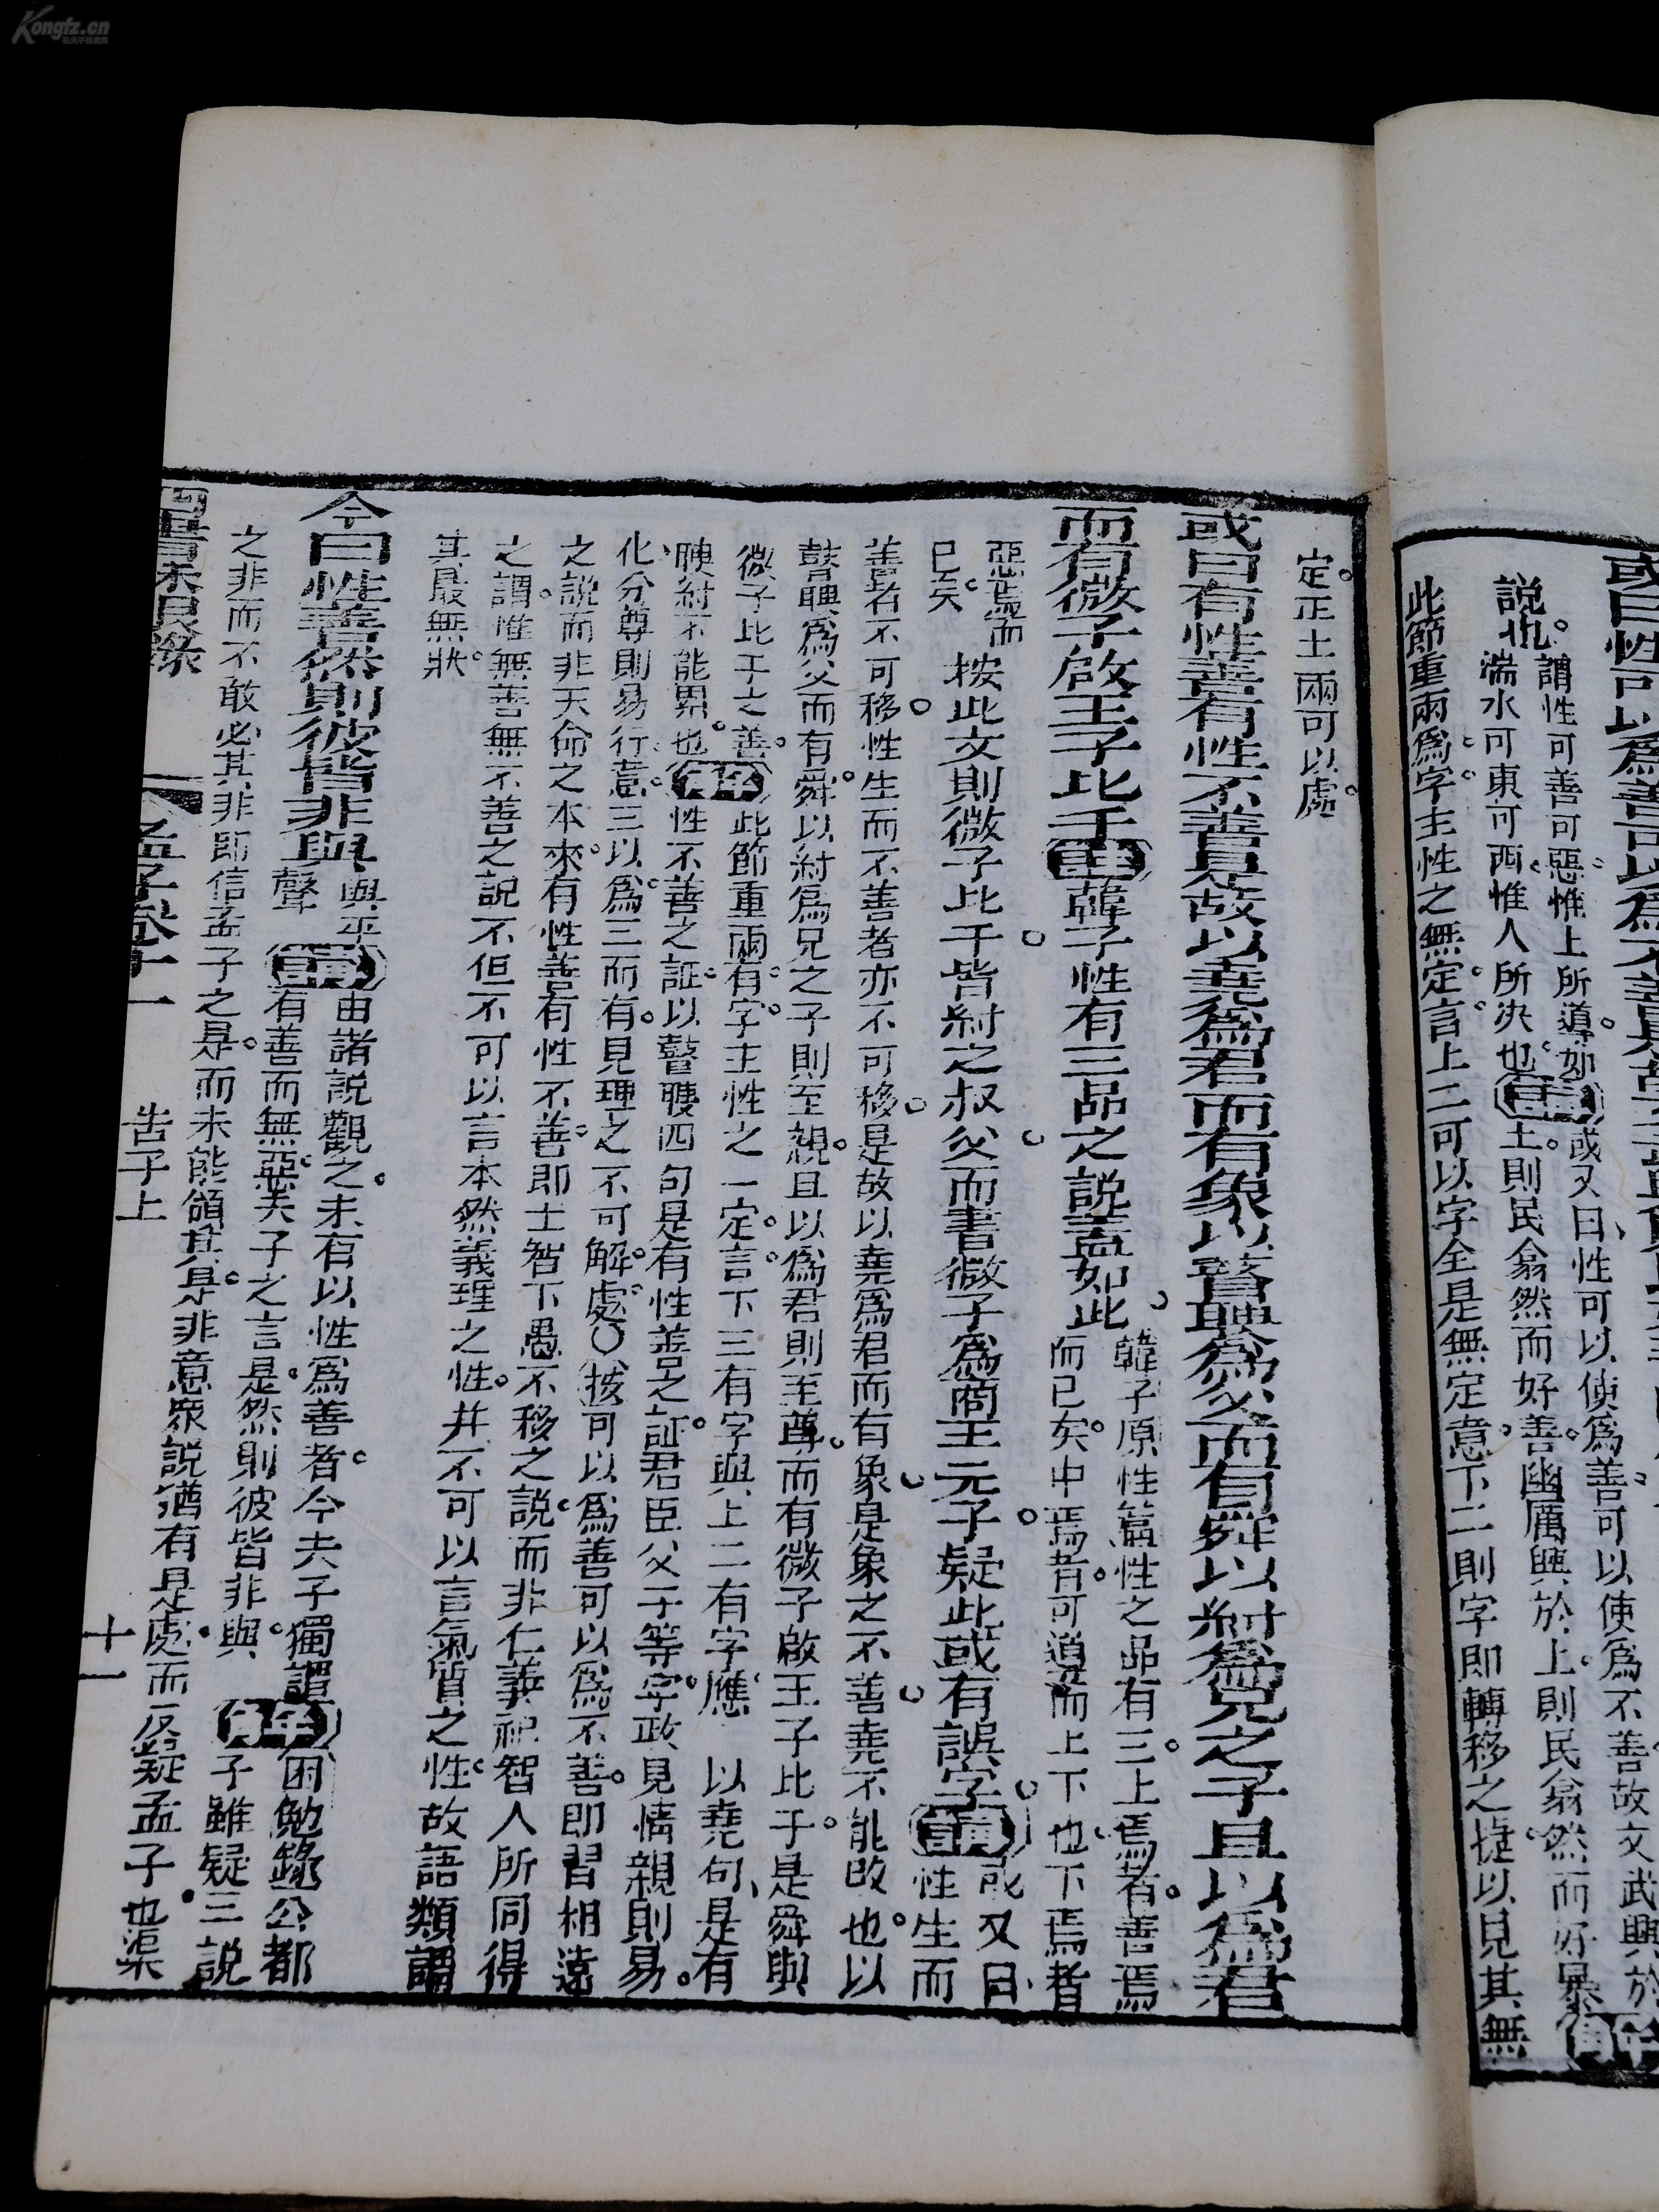 說也。謂性可善可惡惟上所導如
湍水可東可西惟人所決也。
或又曰性可以使爲善可以使爲不善故文武興於
上則民翕然而好善幽厲興於上則民翕然而好暴
此節重兩爲字主性之無定言上二可以字全是無定意下二則字即轉移之捷以見其無
定正土兩可以處
或曰有性善有性不善是故以堯爲君而有象以瞽瞍爲父而有舜以紂爲兄之子且以爲君
而有微子啟王子比干
韓子性有三品之說蓋如此
韓子原性篇性之品有三上焉者善焉
而已矣中焉者可道而上下也下焉者
惡焉而
已矣
按此文則微子比干皆紂之叔父而書微子爲商王元子疑此或有誤字
或又曰
性生而
善者不可移性生而不善者亦不可移是故以堯爲君而有象是象之不善堯不能改也以
瞽瞍爲父而有舜以紂爲兄之子則至親且以爲君則至尊而有微子啟王子比干是舜與
微子比干之善
瞍紂不能累也 解 此節重兩有字主性之一定言下三有字與上二有字應 以堯句是有
性不善之証以瞽瞍四句是有性善之証君臣父子等字政見情親則易
化分尊則易行意三以爲三而有見理之不可解處○按可以爲善可以爲不善即習相遠
之說而非天命之本來有性善有性不善即上智下愚不移之說而非仁義禮智人所同得
之謂惟無善無不善之說不但不可以言本然義理之性并不可以言氣質之性故語類謂
其最無狀
今曰性善然則彼皆非與
與平
聲
由諸說觀之未有以性爲善者今夫子獨謂
有善而無惡夫子之言是然則彼皆非與
解 困勉錄公都
子雖疑三說
之非而不敢必其非即信孟子之是而未能領其是非意衆說猶有是處而反疑孟子也
孟子卷十一 告子上 十一
Kongfz.cn
孔夫子旧书网